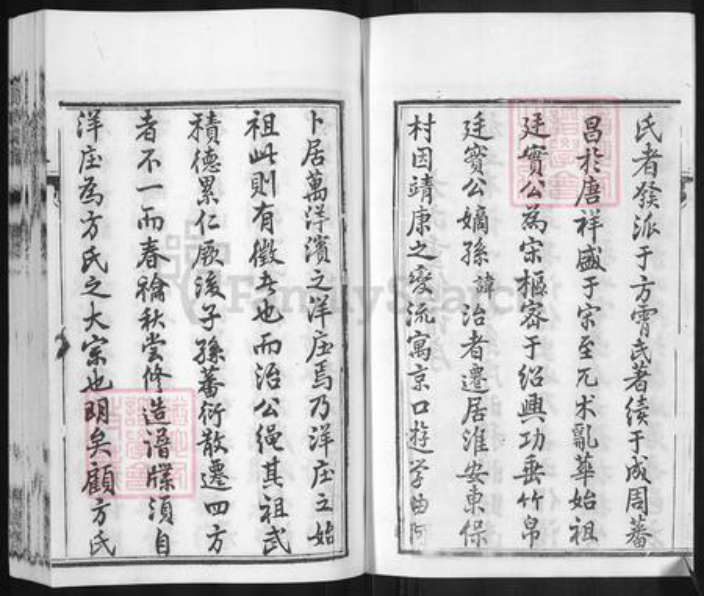 氏者發派于方霄氏著績于成周蕃
昌於唐祥盛于宋至兀术亂華始祖
廷實公為宋樞密于紹興功垂竹帛
廷實公嫡孫諱治者遷居淮安東保
村因靖康之变流寓京口遊学曲阿
卜居萬洋濱之洋庄焉乃洋庄之始
祖此則有徵者也而治公繩其祖武
積德累仁厥後子孫蕃衍散遷四方
者不一而春禴秋尝修造譜牒須自
洋庄為方氏之大宗也明矣顧方氏
FamilySearch